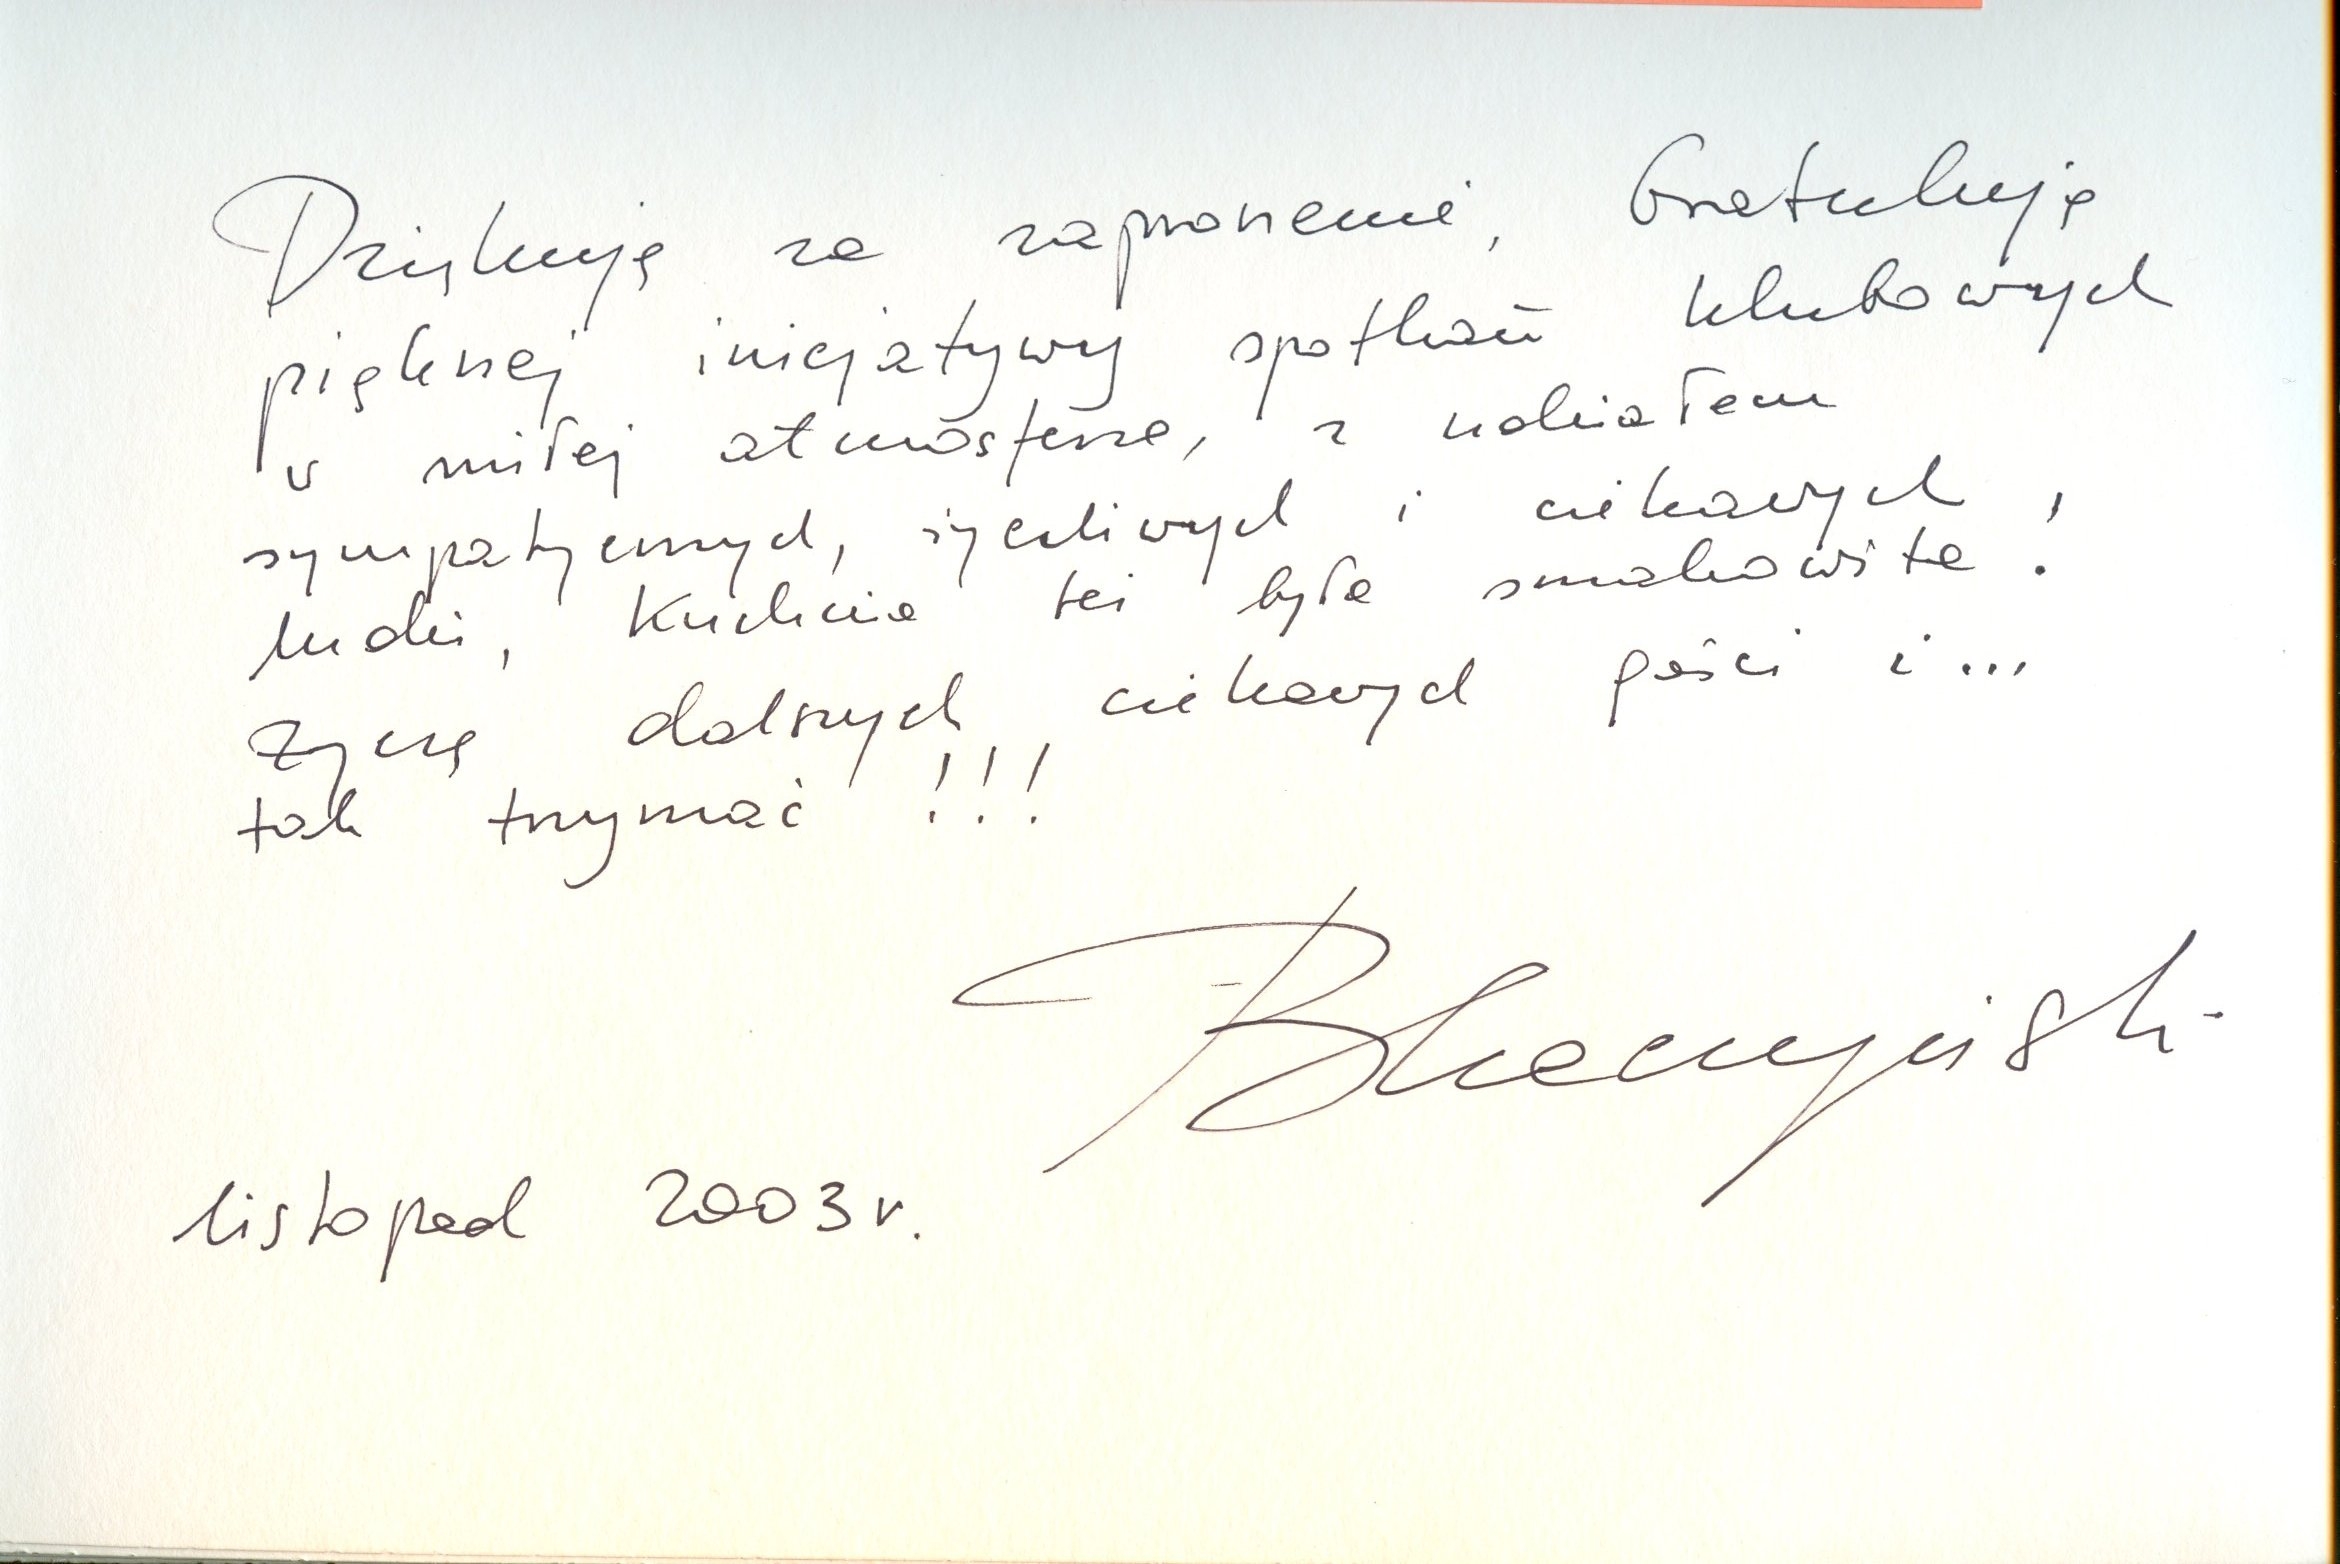 Dziękuję za zaproszenie, Gratuluję
pięknej inicjatywy spotkań klubowych
w miłej atmosferze, z udziałem
sympatycznych, życzliwych i ciekawych
ludzi, Kuchnia też była smakowita!
Życzę dalszych ciekawych gości i...
tak trzymać !!!
listopad 2003 r.